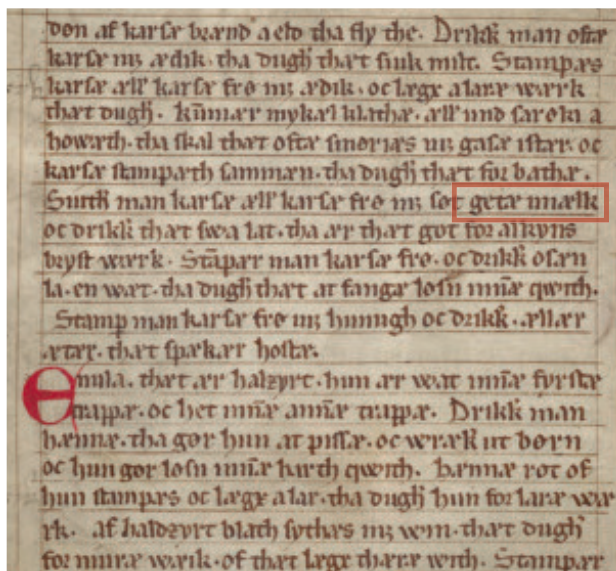 don af karsæ brænd a eld tha fly the. Drikk man oftæ
karsæ mȝ ædik. tha dugh̄ thæt siuk milt. Stampæs
karsæ æll karsæ frø mȝ ædik. oc lægx alaræ wærk
thæt dugh̄. kūmær mykæl klathæ. æll und saroki a
howæth. tha skal thæt oftæ smøriæs mȝ gasæ istær. oc
karsæ stampæth sammæn. tha dugh̄ thæt for bathæ.
Suith man karsæ æll karsæ frø mȝ søt getæ miælk
oc drikk thæt swa lat. tha ær thæt got for alkyns
bryst wærk. Stāpær man karsæ frø. oc drikk ofæn
la. en wæt. tha dugh̄ thæt at fangæ losn innæ qwith.
Stamp man karsæ frø mȝ hunugh oc drikk. ællær
ætær. thæt spækær hostæ.
Enula. thæt ær halzyrt. hun ær wat innæ fyrstæ
trappæ. oc het innæ annæ trappæ. Drikk man
hænnæ. tha gør hun at pissæ. oc wræk ut børn
oc hun gør losn innæ harth qwith. hænnæ rot of
hun stampæs oc lægx alar. tha dugh̄ hun for laræ wæ
rk. af haldzyrt blath sythæs mȝ win. thæt dugh̄
for niuræ wærk. of thæt lægx thæræ with. Stampær